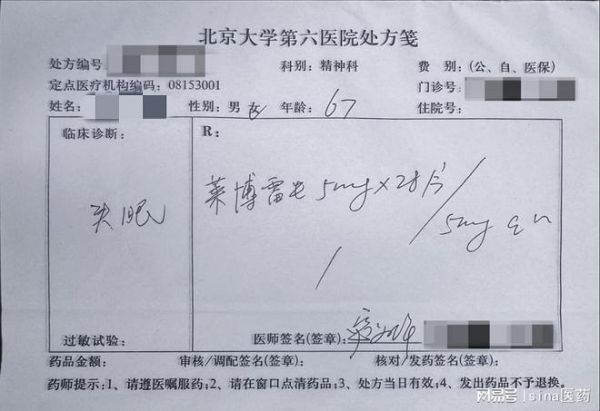 北京大学第六医院处方笺
处方编号 科别：精神科 费 别：(公、自、医保)
定点医疗机构编码：08153001 门诊号：
姓名： 性别：男 女 年龄：67 住院号：
临床诊断： R:
失眠
莱博雷生 5mg×28片
5mg qn
过敏试验： 医师签名(签章)：
药品金额： 审核/调配签名(签章)： 核对/发药签名(签章)：
药师提示：1、请遵医嘱服药；2、请在窗口点清药品；3、处方当日有效；4、发出药品不予退换。
网易号 | sina医药